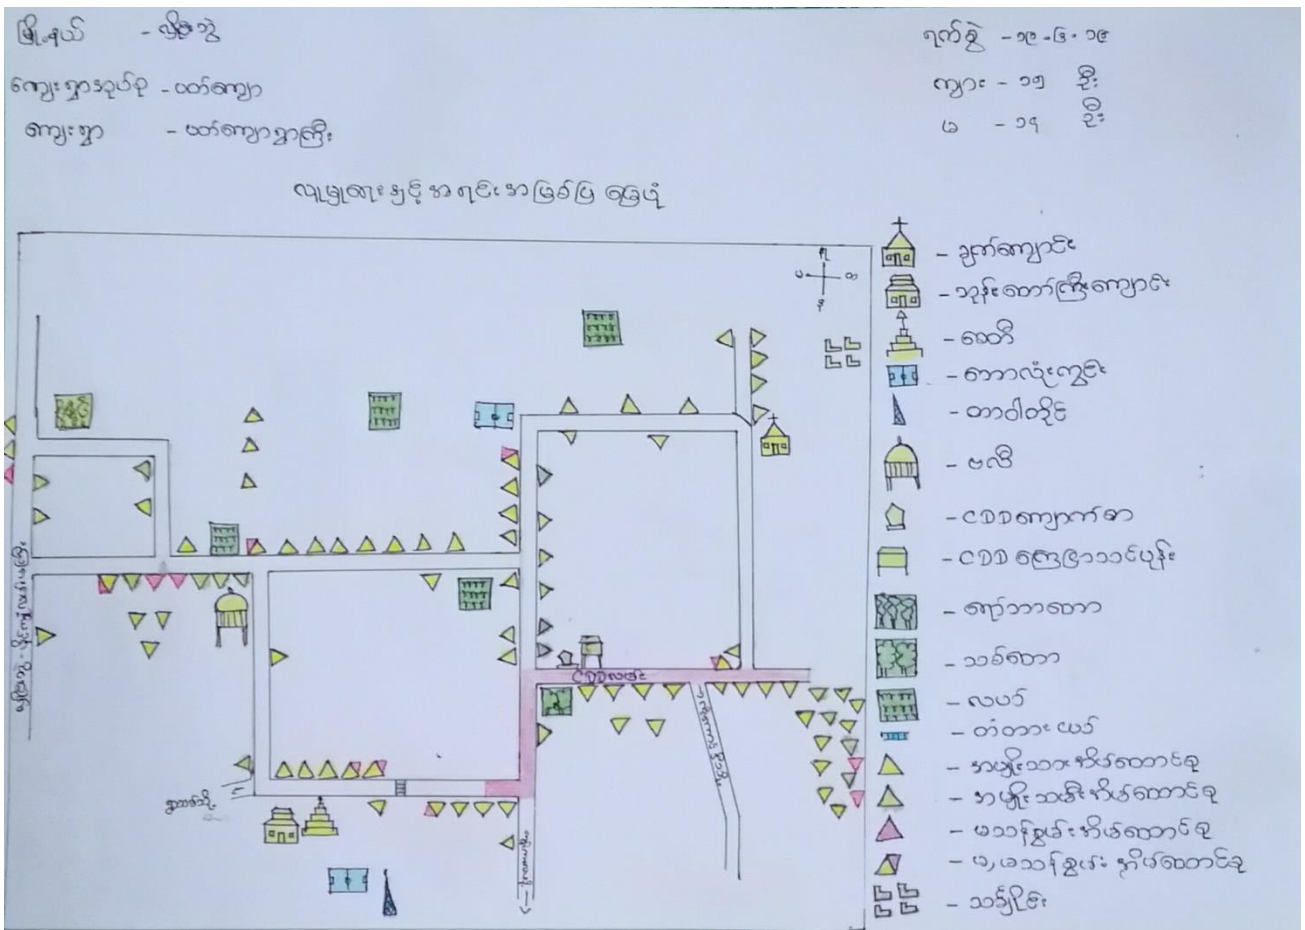 မြို့နယ် - လှိုင်းဘွဲ့
ကျေးရွာအုပ်စု - ပတ်ကျော
ကျေးရွာ - ပတ်ကျောရွာကြီး
ရက်စွဲ - ၁၉-၆-၁၉
ကျား - ၁၅ ဦး
မ - ၁၄ ဦး
လူမှုရေးနှင့်အရင်းအမြစ်ပြမြေပုံ
- ချက်ကျောင်း
- ဘုန်းတော်ကြီးကျောင်း
- စေတီ
- ဘောလုံးကွင်း
- တာဝါတိုင်
- ဗလီ
- CDDကျောက်စာ
- CDD ကြော်ငြာသင်ပုန်း
- ရော်ဘာတော
- သစ်တော
- လယ်
- တံတားငယ်
- အမျိုးသားအိမ်ထောင်စု
- အမျိုးသမီးအိမ်ထောင်စု
- မသန်စွမ်းအိမ်ထောင်စု
- မ,မသန်စွမ်း အိမ်ထောင်စု
- သင်္ချိုင်း
CDDလမ်း
ရွာသစ်သို့